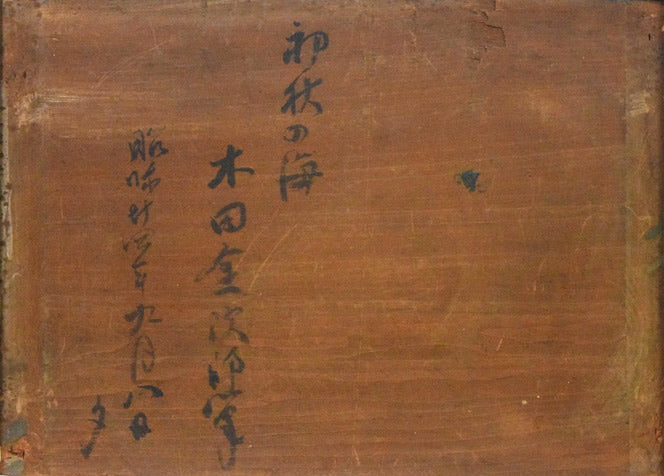 初秋の海
木田金次郎筆
昭和廿四年九月八日
夕